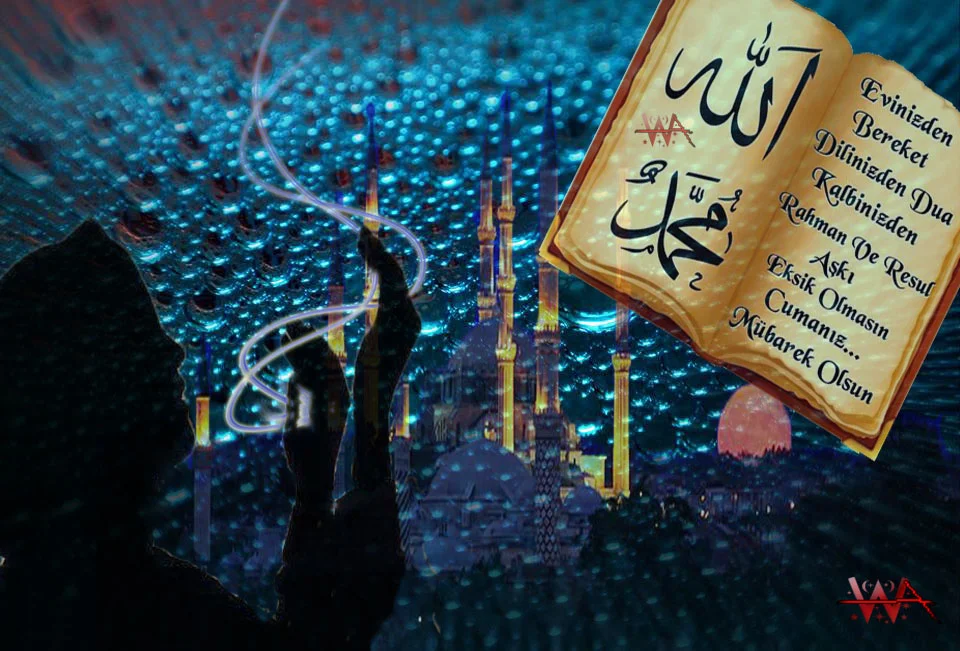 الله
محمد
Evinizden
Bereket
Dilinizden Dua
Kalbinizden
Rahman Ve Resul
Aşkı
Eksik Olmasın
Cumanız...
Mübarek Olsun
WA
WA